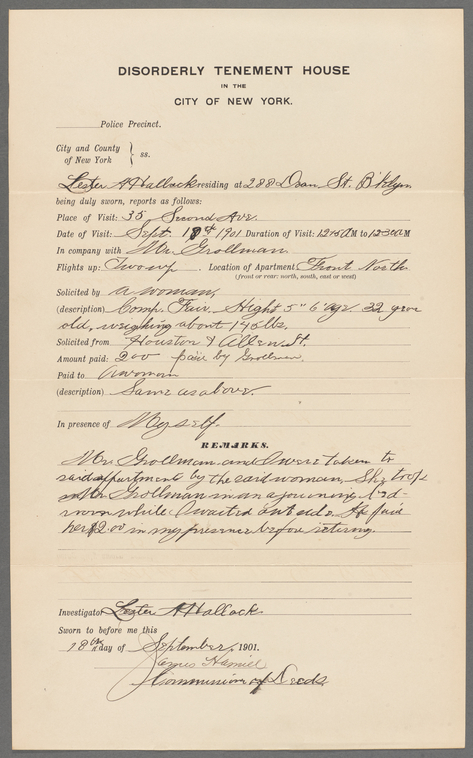 DISORDERLY TENEMENT HOUSE
IN THE
CITY OF NEW YORK.
Police Precinct.
City and County
of New York } ss.
Lester A Hallock residing at 288 Dean St. B'klyn
being duly sworn, reports as follows:
Place of Visit: 35 Second Ave.
Date of Visit: Sept. 1901 Duration of Visit: M to M
In company with Mr. Grollman.
Flights up: Two up. Location of Apartment Front North
(front or rear: north, south, east or west)
Solicited by a woman,
(description) Comp. Fair, Hight 5" 6" age 32 year
old, weighing about 145 lbs.
Solicited from Houston & Allen St.
Amount paid: 200 paid by Grollman.
Paid to A woman
(description) Same as above.
In presence of Myself.
REMARKS.
Mr. Grollman and I were taken to
said appartment by the said woman, She took
Mr. Grollman in an ajouning bed-
room while I waited outside. He paid
her $2.00 in my presence before retiring.
Investigator Lester A Hallock.
Sworn to before me this
18th day of September, 1901.
James Hamill
Commissioner of Deeds